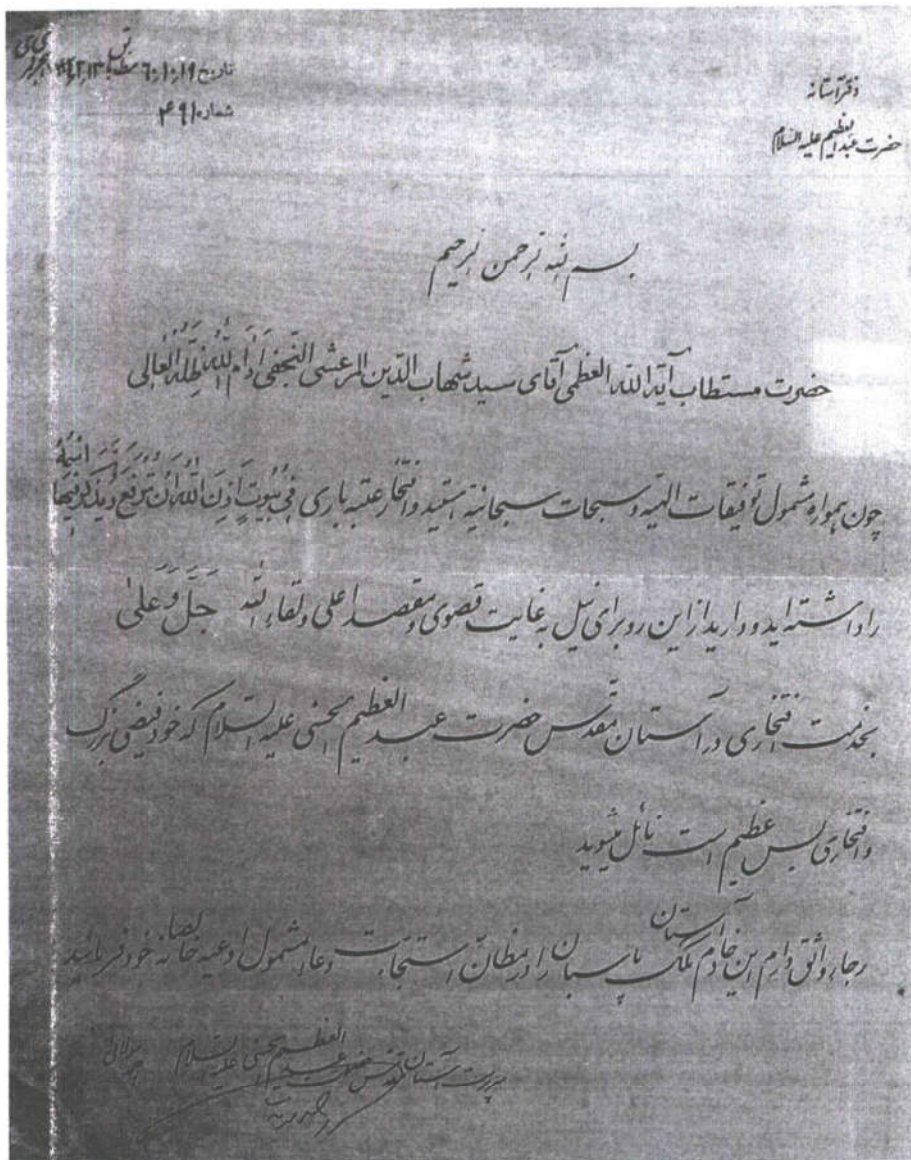 دفتر آستانه
حضرت عبدالعظیم علیه السلام
تاریخ ۶۰،۱۰،۱۹
شماره ۴۹۱
بسم الله الرحمن الرحیم
حضرت مستطاب آیة الله العظمی آقای سید شهاب الدین المرعشی النجفی اَدامَ اللّهُ ظِلَّهُ العالی
چون همواره مشمول توفیقات الهیه و سبحات سبحانیه هستید و افتخار عتبه باری فِی بُیُوتٍ اَذِنَ اللّهُ اَنْ تُرْفَعَ وَ یُذْکَرَ فِیهَا اسْمُهُ
را داشته اید و دارید از این رو برای نیل به غایت قصوی و مقصد اعلی و لقاء الله جَلَّ وَ عَلیٰ
بخدمت افتخاری در آستان مقدس حضرت عبدالعظیم الحسنی علیه السلام که خود فیضی بزرگ
و افتخاری بس عظیم است نائل میشوید
رجاء واثق دارم این خادم آستان ملک پاسبان را در مظان استجابت دعا، مشمول ادعیه خالصانه خود فرمائید
سرپرست آستان مقدس حضرت عبدالعظیم الحسنی علیه السلام